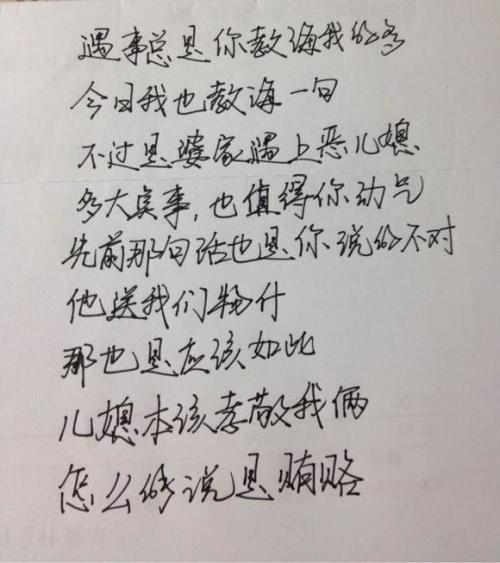 遇事总是你教诲我的多
今日我也教诲一句
不过是婆家遇上恶儿媳
多大点事，也值得你动气
先前那句话也是你说的不对
他送我们物什
那也是应该如此
儿媳本该孝敬我俩
怎么能说是贿赂